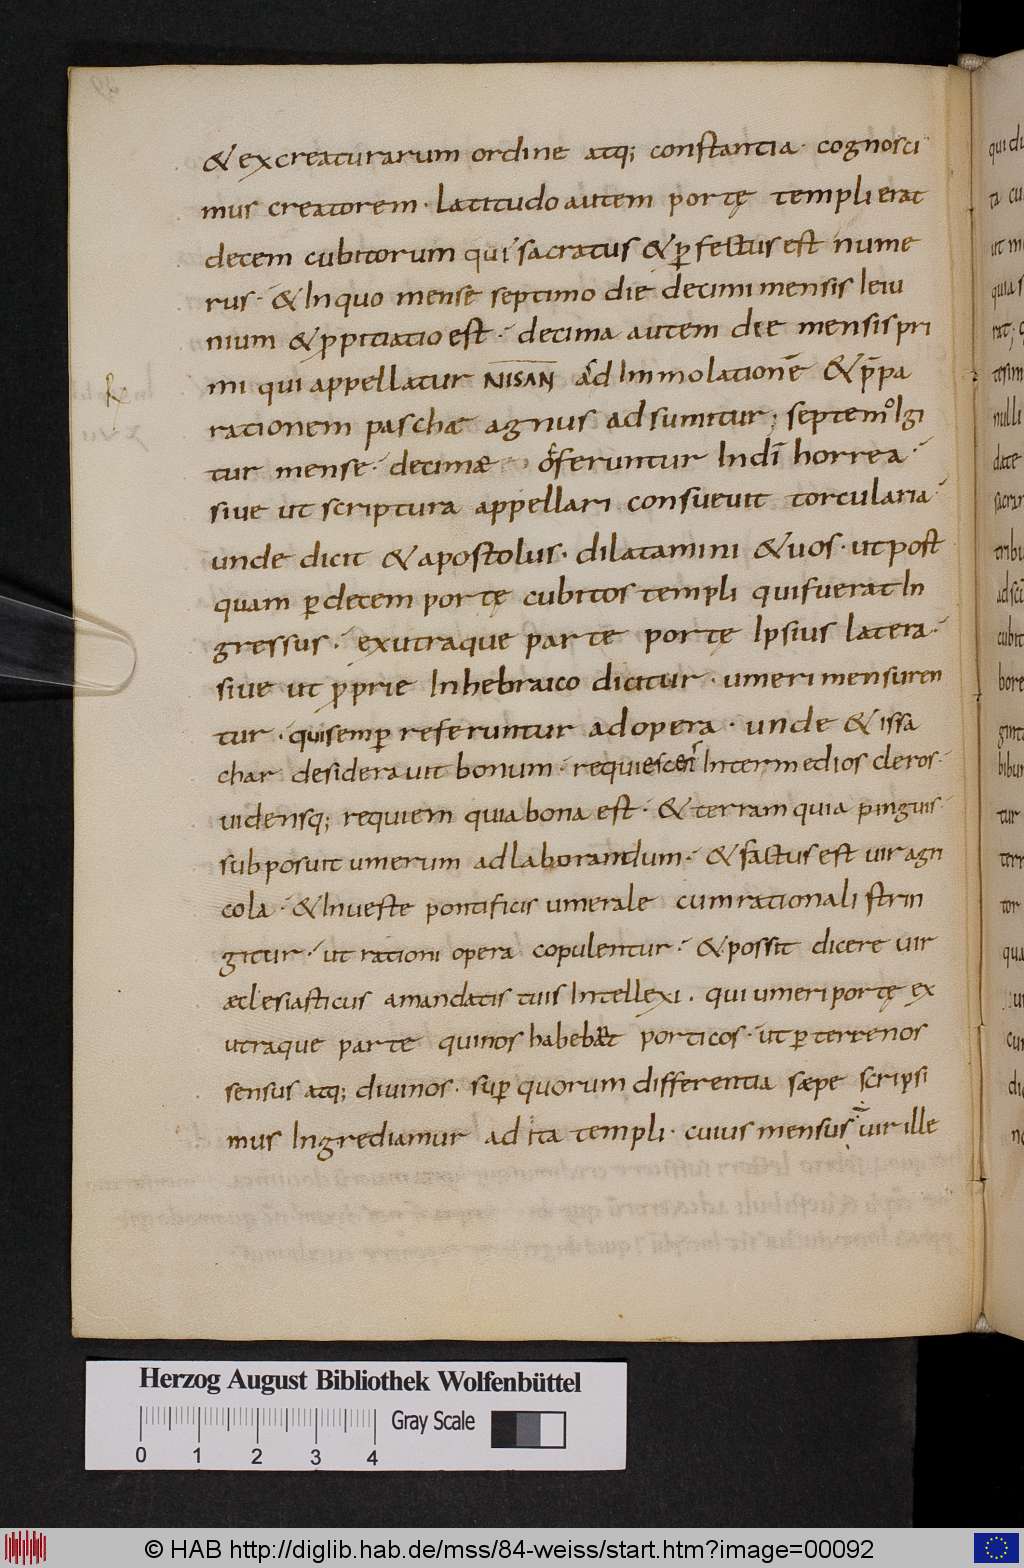 & ex creaturarum ordine atq; constantia · cognosci
mus creatorem · latitudo autem portę templi erat
decem cubitorum qui sacratus & ꝑfectus est nume
rus · & In quo mense septimo die decimi mensis ieiu
nium & ꝓpitiatio est · decima autem die mensis pri
mi qui appellatur NISAN ad Immolationē & p̄pa
rationem paschae agnus adsumitur ; septemo Igi
tur mense · decimae offeruntur In dī horrea ·
sive ut scriptura appellari consuevit torcularia ·
unde dicit & apostolus · dilatamini & vos · ut post
quam ꝑ decem portę cubitos templi qui fuerat In
gressus · ex utraque parte portę Ipsius latera ·
sive ut ꝓprie In hebraico dicitur · umeri mensuren
tur · qui semꝑ referuntur ad opera · unde & issa
char desideravit bonum · requiescens Inter medios cleros ·
vidensq; requiem quia bona est · & terram quia pinguis ·
subposuit umerum ad laborandum · & factus est vir agri
cola · & In veste pontificis umerale cum rationali strin
gitur · ut rationi opera copulentur · & possit dicere vir
aeclesiasticus a mandatis tuis Intellexi . qui umeri portę ex
utraque parte quinos habebant porticos · ut ꝑ terrenos
sensus atq; divinos · suꝑ quorum differentia saepe scripsi
mus Ingrediamur ad ita templi · cuius mensus vir ille
Herzog August Bibliothek Wolfenbüttel
Gray Scale
0 1 2 3 4
© HAB http://diglib.hab.de/mss/84-weiss/start.htm?image=00092